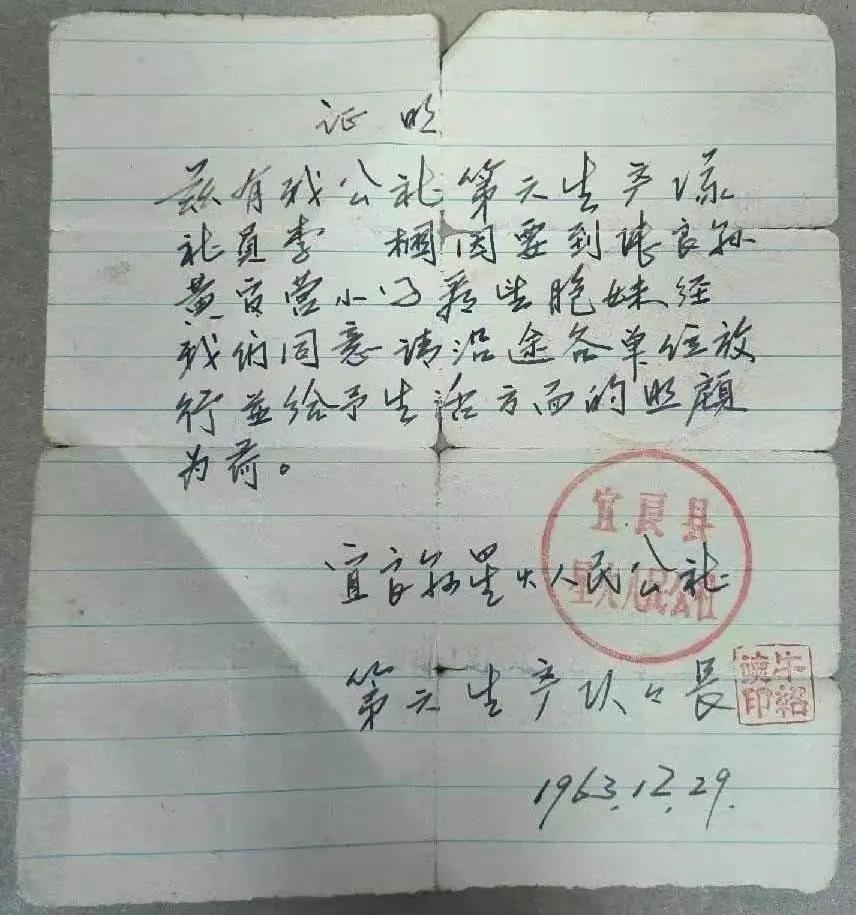 证明
兹有我公社第六生产队
社员李 栶因要到陆良县
黄官营小学看望胞妹经
我们同意请沿途各单位放
行並给予生活方面的照顾
为荷。
宜良县
星火人民公社
宜良县星火人民公社
第六生产队队長
牛紹
印
1963.12.29.